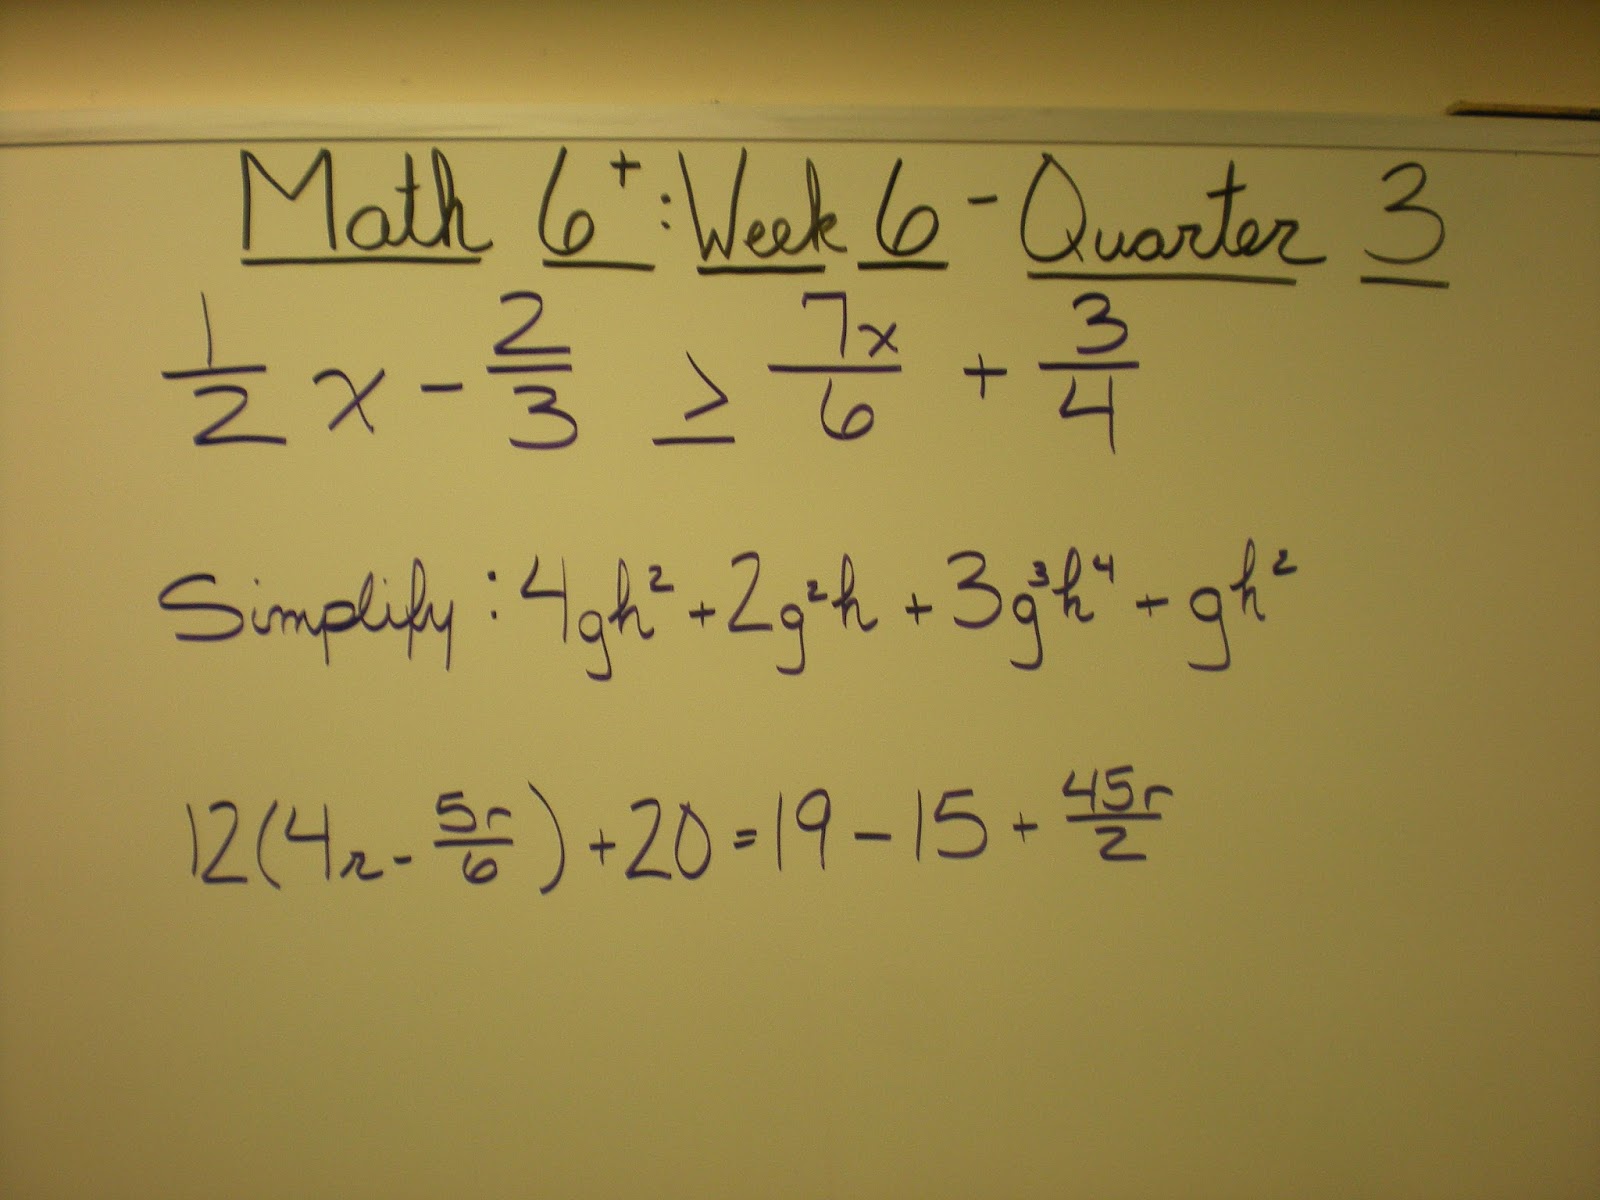 Math 6⁺: Week 6 - Quarter 3
1/2 x - 2/3 ≥ 7x/6 + 3/4
Simplify: 4gh² + 2g²h + 3g³h⁴ + gh²
12(4r - 5r/6) + 20 = 19 - 15 + 45r/2